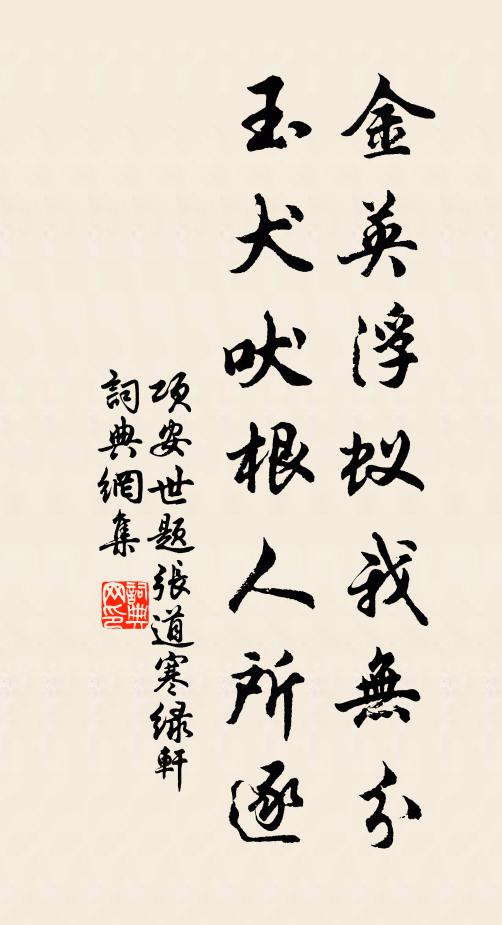 金英浮蚁我無分
玉犬吠根人所逐
项安世题張道寒緑軒
詞典網集
詞典网印